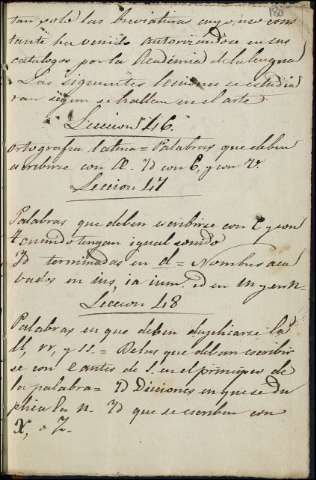 tan solo las breviaturas cuyo uso cons
tante ha venido autorizandose en sus
catalogos por la Academia de la lengua
Las siguientes lecciones se estudia
ran segun se hallan en el arte
Leccion 46.
ortografia latina = Palabras que deben
escribirse con Æ. Yd con C, y con V.
Leccion 47
Palabras que deben escribirse con C y con
t cuando tengan igual sonido
Yd terminadas en d = Nombres aca
bados en ius, ia ium. id en m y en n.
Leccion 48
Palabras en que deben duplicarse la
ll, rr, y ss. = De las que deban escribir
se con e antes de s. en el principio de
la palabra = Yd Dicciones en que se du
plica la n. Yd que se escriben con
X, o Z.